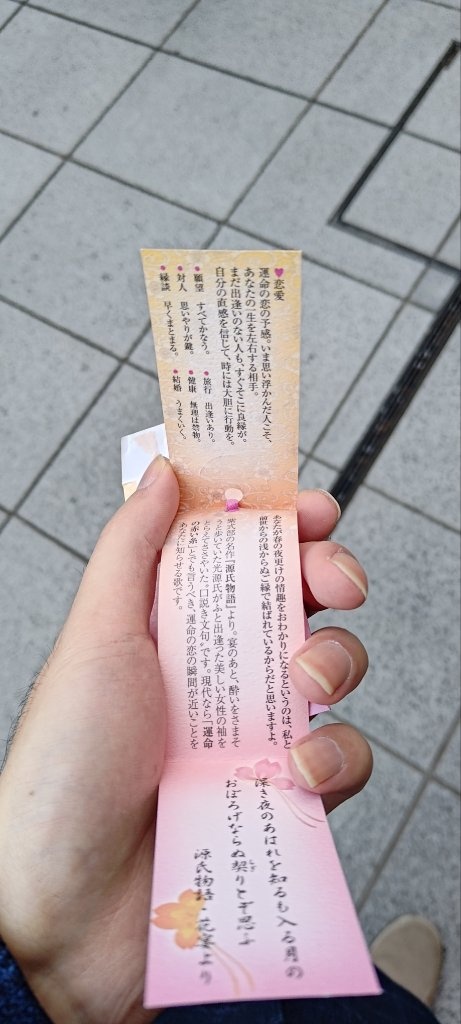 ♥恋愛
運命の恋の予感。いま思い浮かんだ人こそ、
あなたの一生を左右する相手。
まだ出逢いのない人も、すぐそこに良縁が。
自分の直感を信じて、時には大胆に行動を。
●願望 すべてかなう。
●対人 思いやりが鍵。
●縁談 早くまとまる。
●旅行 出逢いあり。
●健康 無理は禁物。
●結婚 うまくいく。
あなたが春の夜更けの情趣をおわかりになるというのは、私と
前世からの浅からぬご縁で結ばれているからだと思いますよ。
紫式部の名作『源氏物語』より。宴のあと、酔いをさまそ
うと歩いていた光源氏がふと出逢った美しい女性の袖を
とらえてささやいた〝口説き文句〟です。現代なら「運命
の赤い糸」とでも言うべき、運命の恋の瞬間が近いことを
あなたに知らせる歌です。
深き夜のあはれを知るも入る月の
おぼろげならぬ契りとぞ思ふ
ちぎ
源氏物語・花宴より